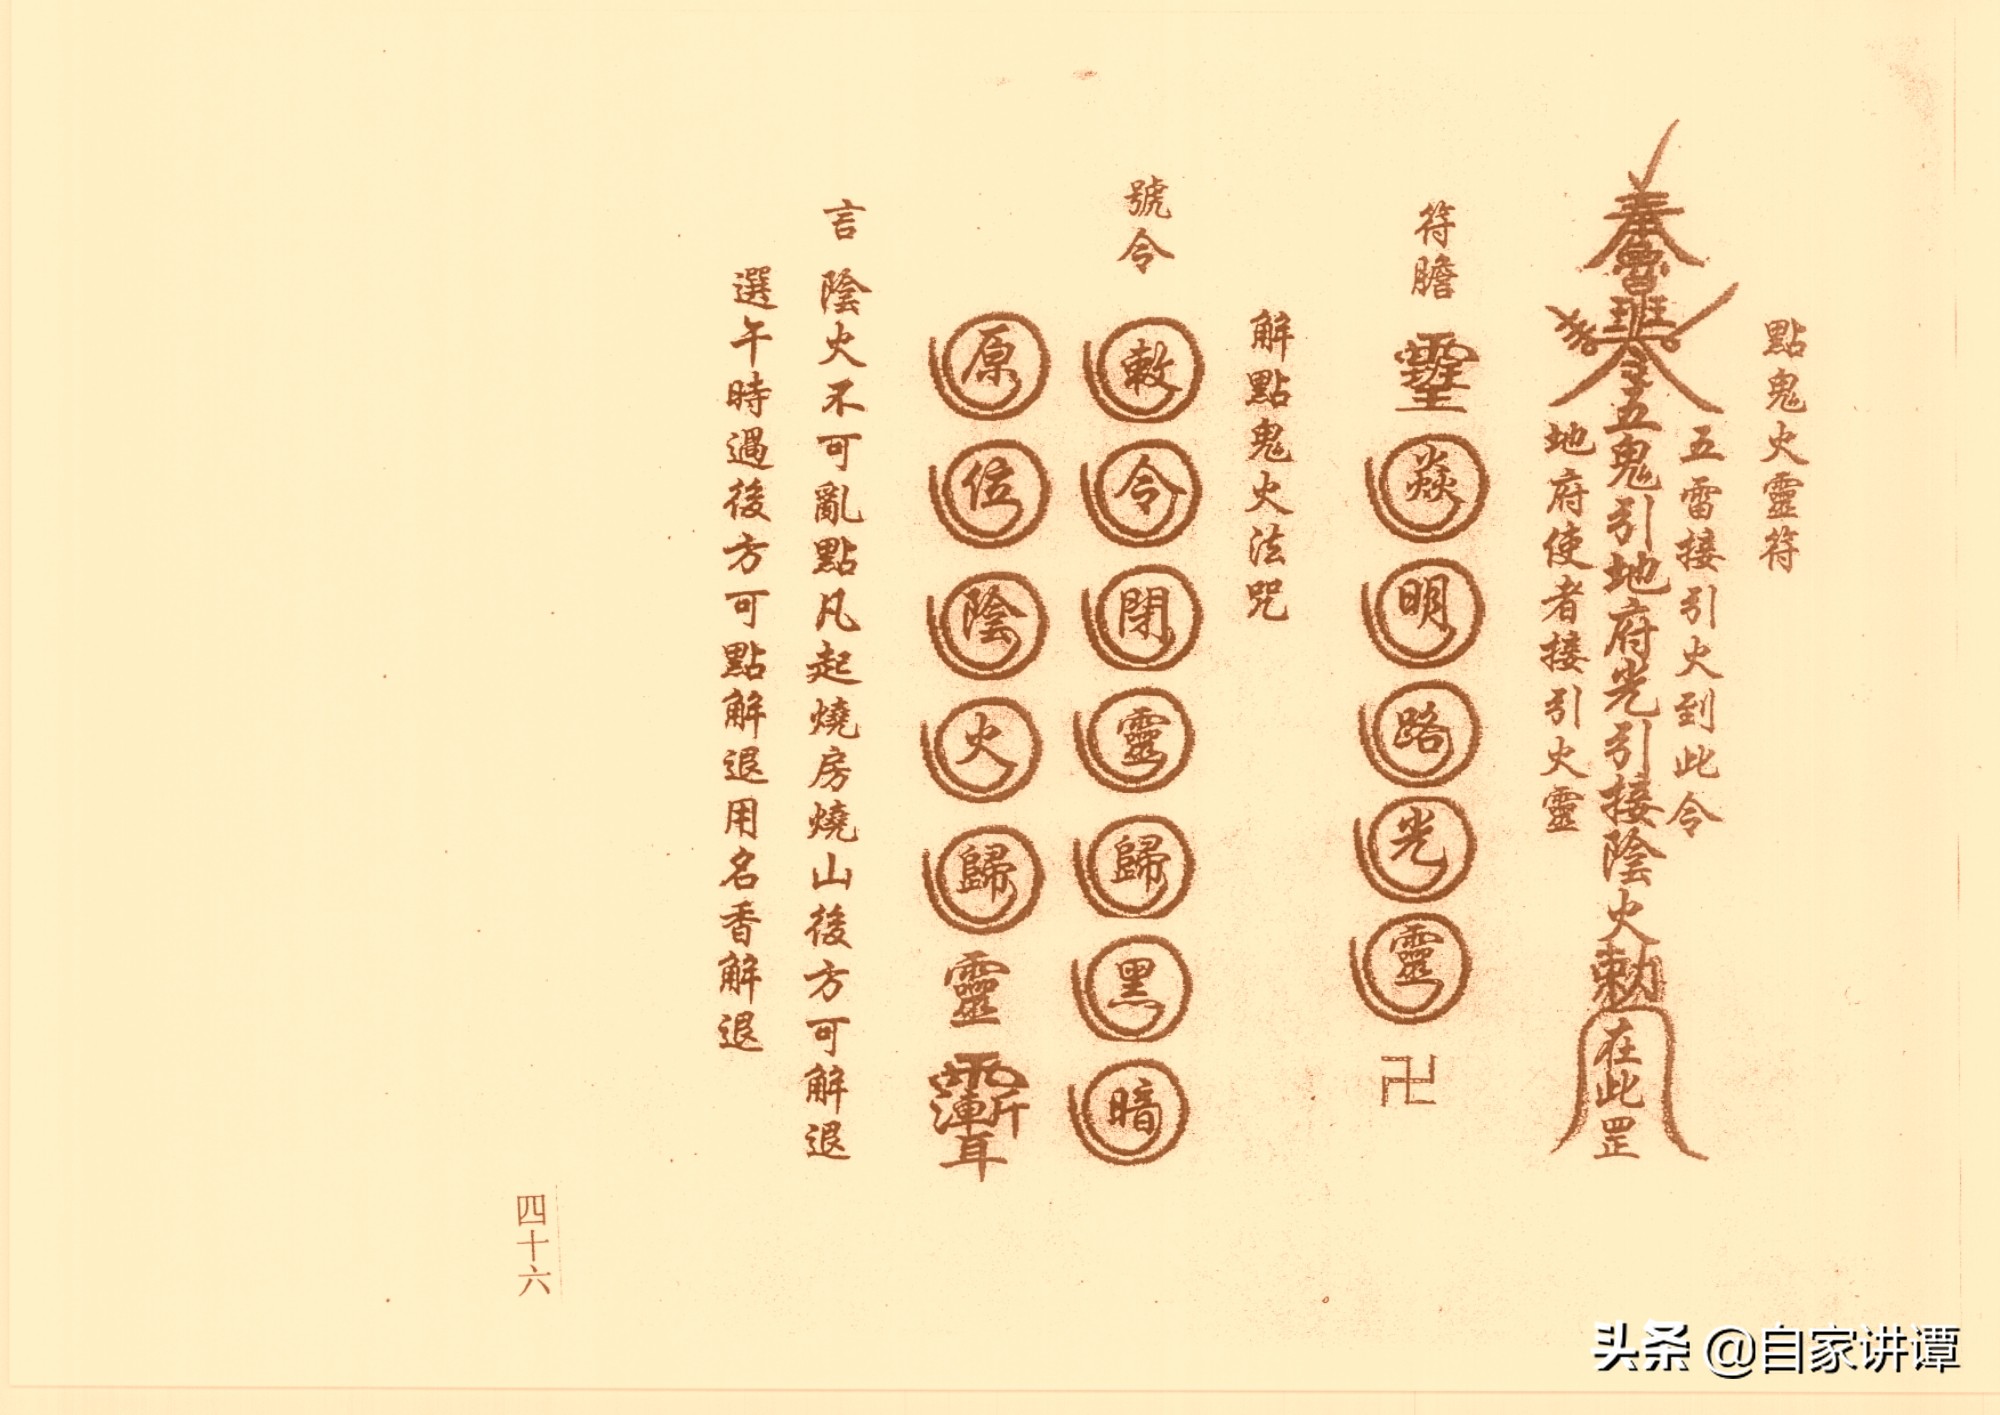 點鬼火靈符
五雷接引火到此令
魯班令五鬼引地府光引接陰火勅在此罡
地府使者接引火靈
符膽
焱明路光靈卍
解點鬼火法咒
號令
敕令閉靈歸黑暗
原位陰火歸靈
言陰火不可亂點凡起燒房燒山後方可解退
選午時過後方可點解退用名香解退
四十六
头条 @自家讲谭